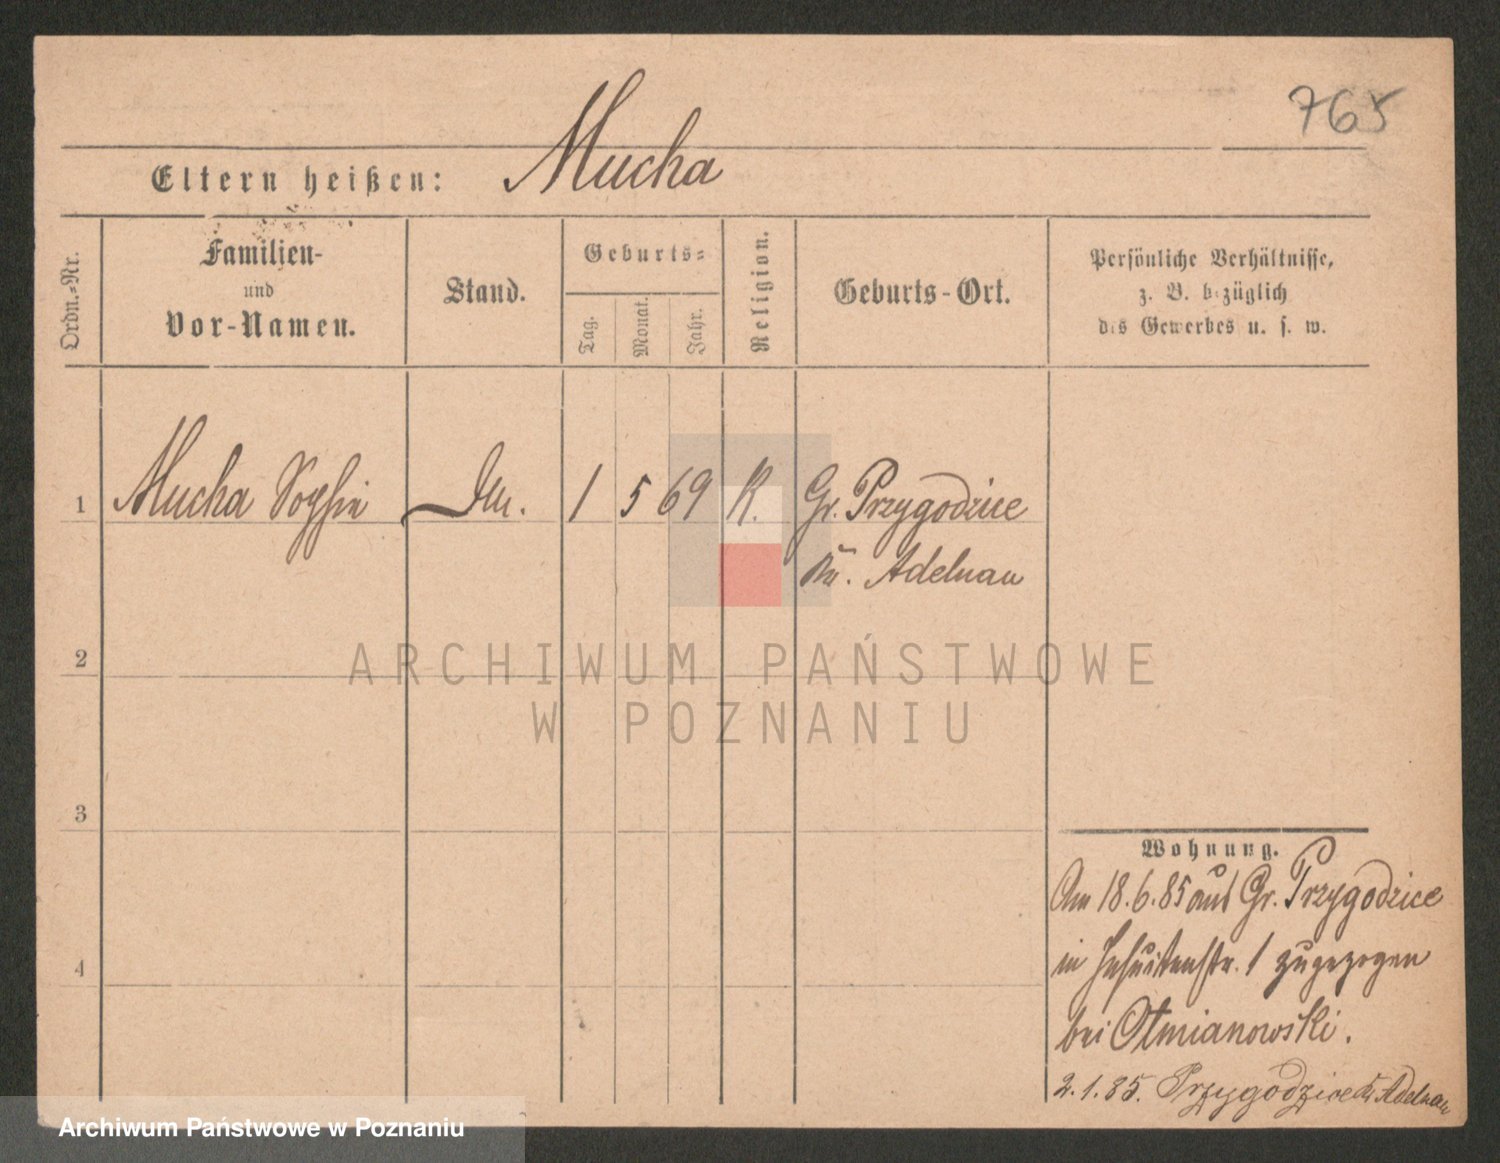 765
Eltern heißen: Mucha
Ordn.-Nr.
Familien-
und
Vor-Namen.
Stand.
Geburts-
Tag.
Monat.
Jahr.
Religion.
Geburts-Ort.
Persönliche Verhältnisse,
z. B. bezüglich
des Gewerbes u. s. w.
1 Mucha Sophie 1 5 69 K. Gr. Przygodzice
Kr. Adelnau
2
3
4
Wohnung.
Am 18.6.85 aus Gr. Przygodzice
in Jesuitenstr. 1 zugezogen
bei Otmianowski.
2.1.85. Przygodzice Kr Adelnau
ARCHIWUM PAŃSTWOWE
W POZNANIU
Archiwum Państwowe w Poznaniu